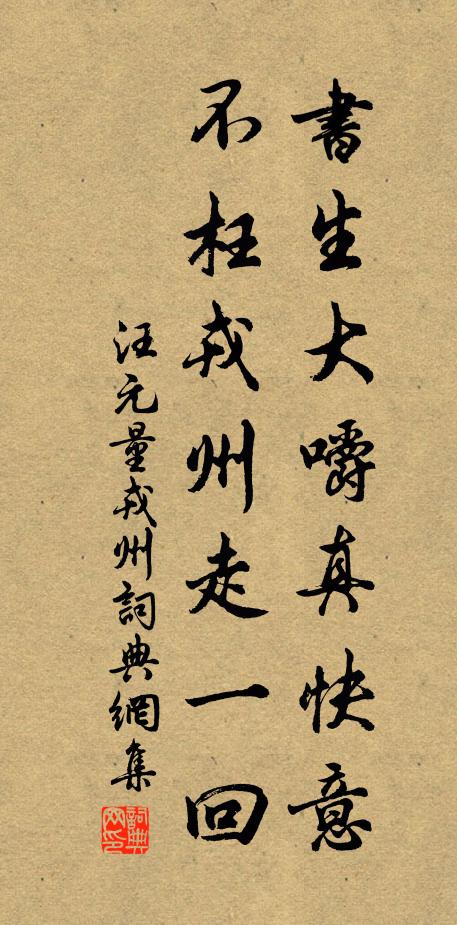 書生大嚼真快意
不枉戎州走一回
汪元量戎州詞典網集
詞典網印